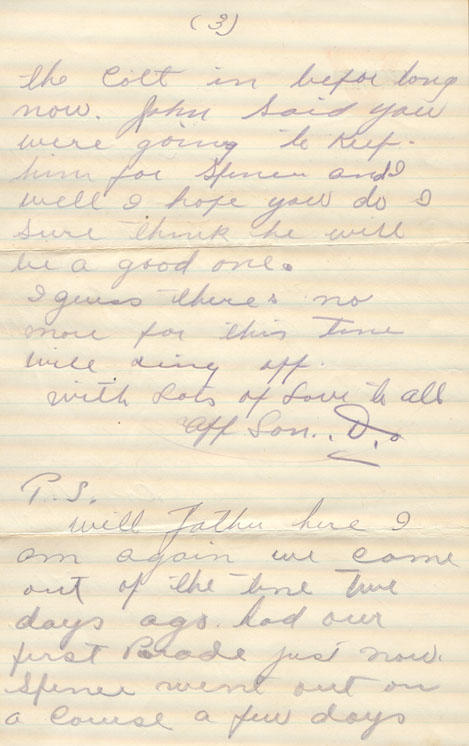 (3)
the Colt in befor long
now. John said you
were going to keep.
him for Spence and I
well I hope you do I
sure think he will
be a good one.
I guess there's no
more for this time
will ring off.
with Lots of Love to all
Aff Son.. D.
P.S.
well Father here I
am again we came
out of the line two
days ago. had our
first Parade just now.
Spence went out on
a course a few days